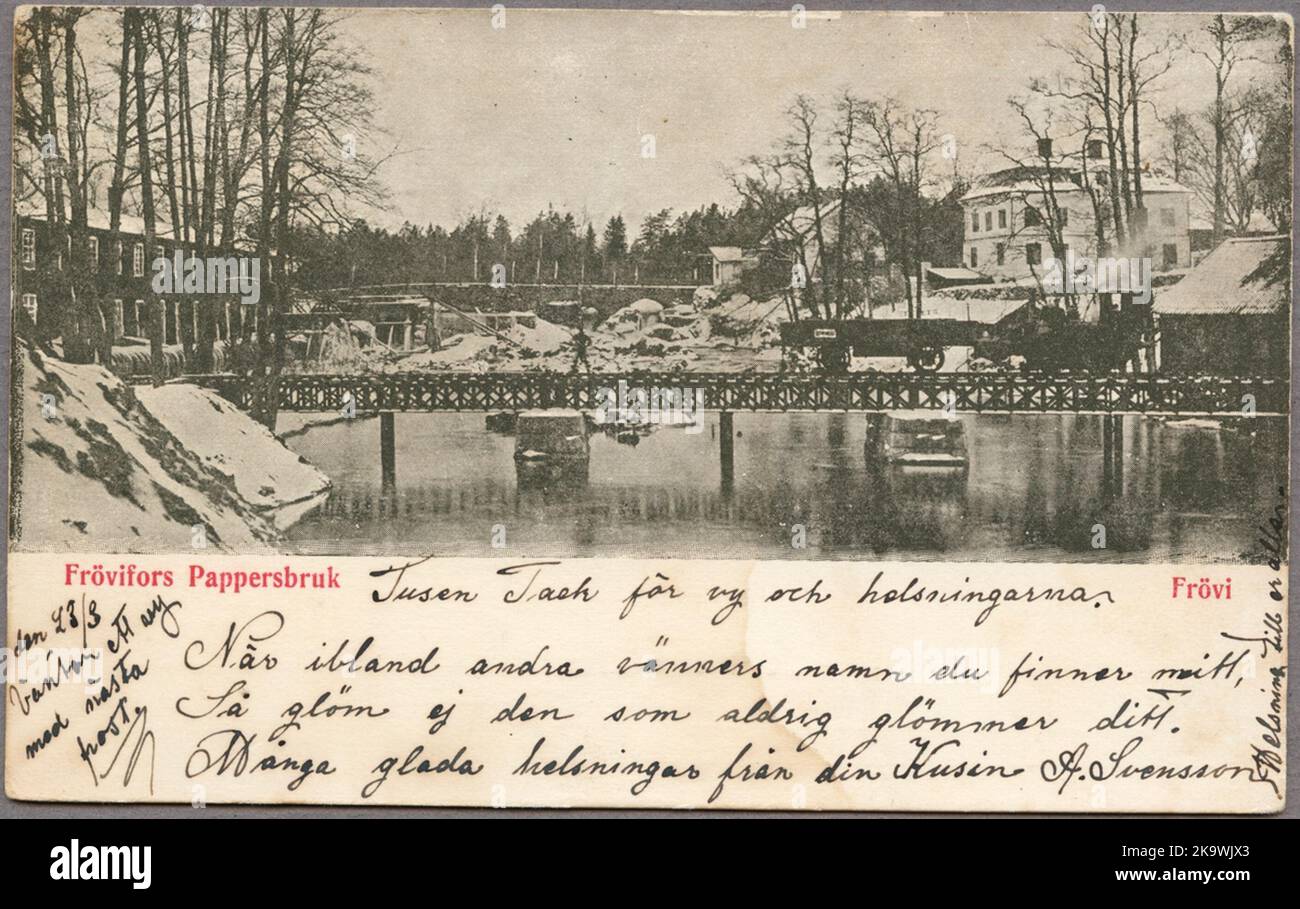 Frövifors Pappersbruk
Frövi
Tusen Tack för vy och helsningarna.
När ibland andra vänners namn du finner mitt,
Så glöm ej den som aldrig glömmer ditt.
Många glada helsningar från din Kusin A. Svensson
den 23/3
Väntar ett vy
med nästa
post.
Helsning till er alla.
alamy
Image ID: K9WJX3
www.alamy.com